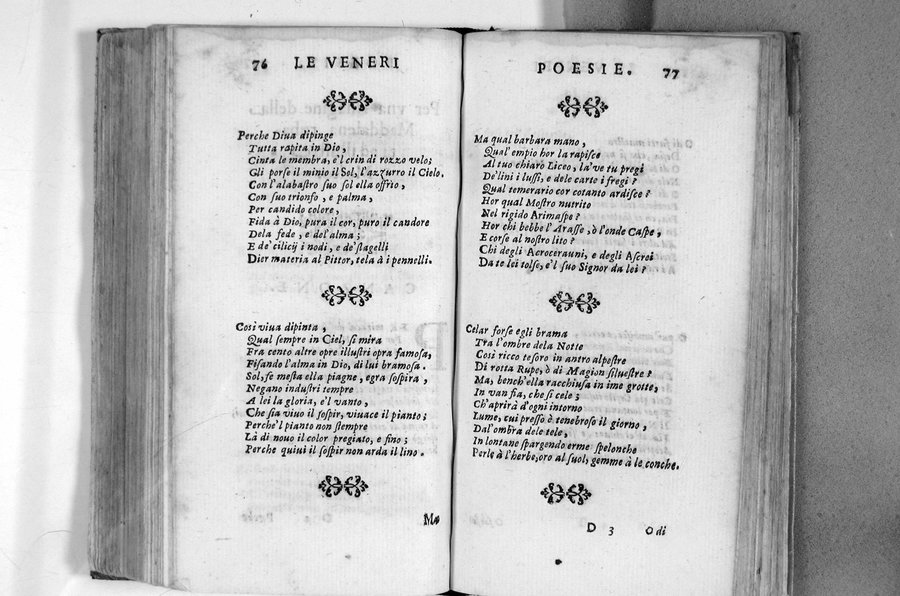 76 LE VENERI
Perche Diua dipinge
Tutta rapita in Dio,
Cinta le membra, e'l crin di rozzo velo;
Gli porse il minio il Sol, l'azzurro il Cielo.
Con l'alabastro suo sol ella offrìo,
Con suo trionfo, e palma,
Per candido colore,
Fida à Dio, pura il cor, puro il candore
Dela fede, e del'alma;
E de' cilicij i nodi, e de' flagelli
Dier materia al Pittor, tela à i pennelli.
Così viua dipinta,
Qual sempre in Ciel, si mira
Fra cento altre opre illustri opra famosa,
Fisando l'alma in Dio, di lui bramosa.
Sol, se mesta ella piagne, egra sospira,
Negano industri tempre
A lei la gloria, e'l vanto,
Che sia viuo il sospir, viuace il pianto;
Perche'l pianto non stempre
Là di nouo il color pregiato, e fino;
Perche quiui il sospir non arda il lino.
Ma
POESIE. 77
Ma qual barbara mano,
Qual' empio hor la rapisce
Al tuo chiaro Liceo, la've tu pregi
De' lini i lussi, e dele carte i fregi?
Qual temerario cor cotanto ardisce?
Hor qual Mostro nutrito
Nel rigido Arimaspe?
Hor chi bebbe l'Arasse, ò l'onde Caspe,
E corse al nostro lito?
Chi degli Acrocerauni, e degli Ascrei
Da te lei tolse, e'l suo Signor da lei?
Celar forse egli brama
Tra l'ombre dela Notte
Così ricco tesoro in antro alpestre
Di rotta Rupe, ò di Magion siluestre?
Ma, bench' ella racchiusa in ime grotte,
In van fia, che si cele;
Ch'aprirà d'ogni intorno
Lume, cui presso è tenebroso il giorno,
Dal'ombra dele tele,
In lontane spargendo erme spelonche
Perle à l'herbe, oro al suol, gemme à le conche.
D 3 Odi